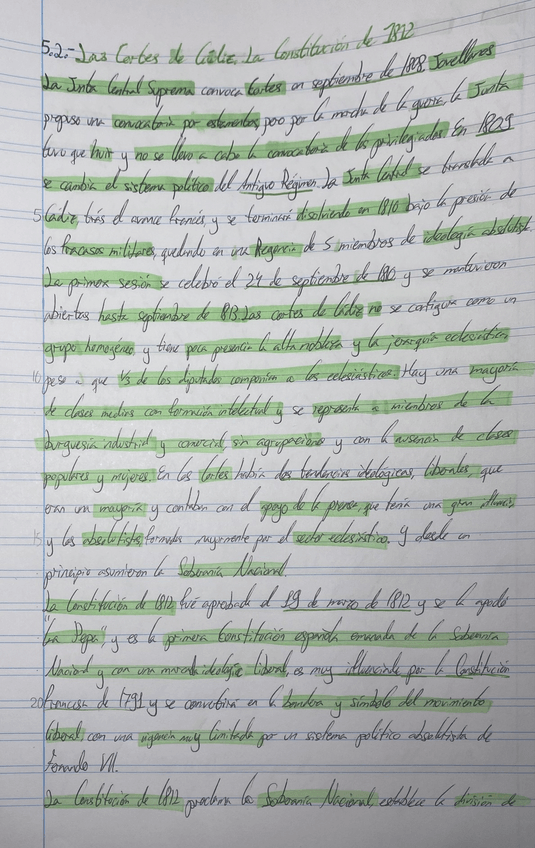 5.2.- Las Cortes de Cádiz. La Constitución de 1812
La Junta Central Suprema convoca Cortes en septiembre de 1808 Jovellanos
propuso una convocatoria por estamentos, pero por la marcha de la guerra, la Junta
tuvo que huir y no se llevo a cabo la convocatoria de los privilegiados. En 1809
se cambia el sistema político del Antiguo Régimen. La Junta Central se translada a
5 Cádiz, trás el avance francés, y se terminará disolviendo en 1810 bajo la presión de
los fracasos militares, quedando en una Regencia de 5 miembros de ideología absolutista.
La primera sesión se celebró el 24 de septiembre de 1810 y se mantuvieron
abiertas hasta septiembre de 1813. Las cortes de Cádiz no se configura como un
grupo homogéneo, y tiene poca presencia la alta nobleza y la jerarquía eclesiástica
10 pese a que 1/3 de los diputados componían a los eclesiásticos. Hay una mayoría
de clases medias con formación intelectual y se representa a miembros de la
burguesía industrial y comercial, sin agrupaciones y con la ausencia de clases
populares y mujeres. En las Cortes había dos tendencias ideológicas, liberales, que
eran un mayoría y contaban con el apoyo de la prensa, que tenía una gran
15 y los absolutistas, formados mayormente por el sector eclesiástico. Y desde un
principio asumieron la Soberanía Nacional.
La Constitución de 1812 fué aprobada el 19 de marzo de 1812 y se la apodo
"La Pepa", y es la primera Constitución española emanada de la Soberanía
Nacional y con una marcada ideología liberal, es muy influenciada por la Constitución
20 francesa de 1791 y se convertirá en la bandera y símbolo del movimiento
liberal, con una vigencia muy limitada por un sistema político absolutista de
Fernando VII.
La Constitución de 1812 proclama la Soberanía Nacional, establece la división de